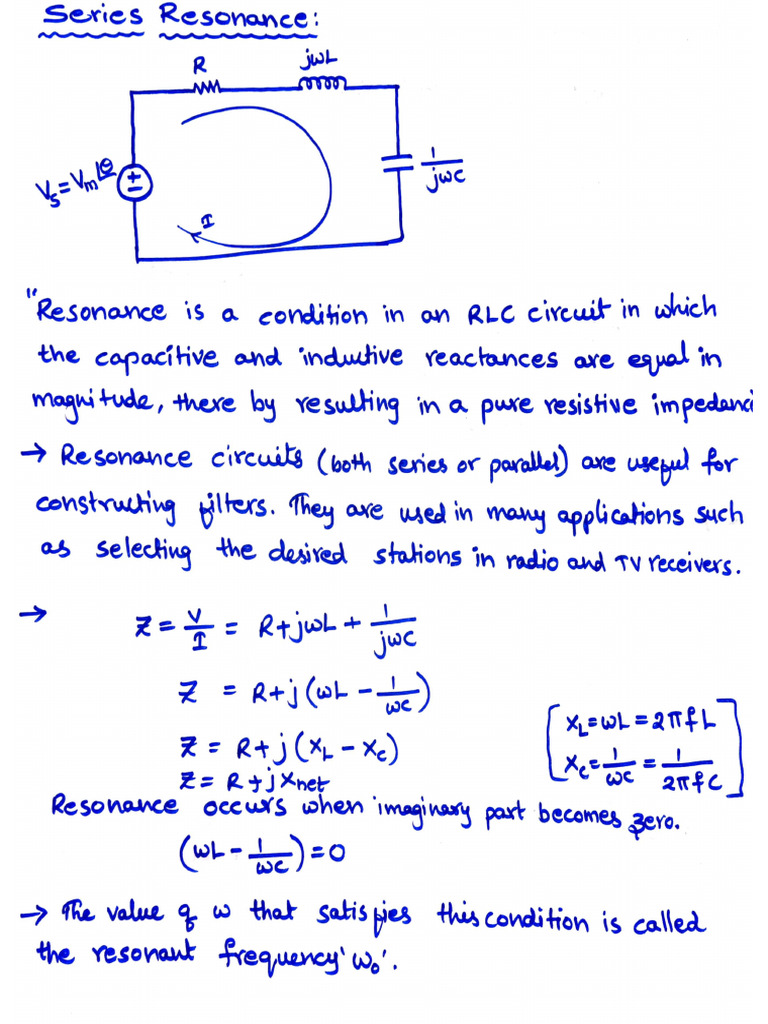 Series Resonance:
R
jωL
Vs = Vm∠θ
+
-
1/jωC
I
"Resonance is a condition in an RLC circuit in which
the capacitive and inductive reactances are equal in
magnitude, there by resulting in a pure resistive impedanc
→ Resonance circuits (both series or parallel) are useful for
constructing filters. They are used in many applications such
as selecting the desired stations in radio and TV receivers.
→ Z = V/I = R+jωL + 1/jωC
Z = R+j(ωL - 1/ωC)
Z = R+j(XL - XC)
Z = R+jXnet
[XL = ωL = 2πfL
XC = 1/ωC = 1/2πfC]
Resonance occurs when imaginary part becomes zero.
(ωL - 1/ωC) = 0
→ The value of ω that satisfies this condition is called
the resonant frequency 'ω₀'.